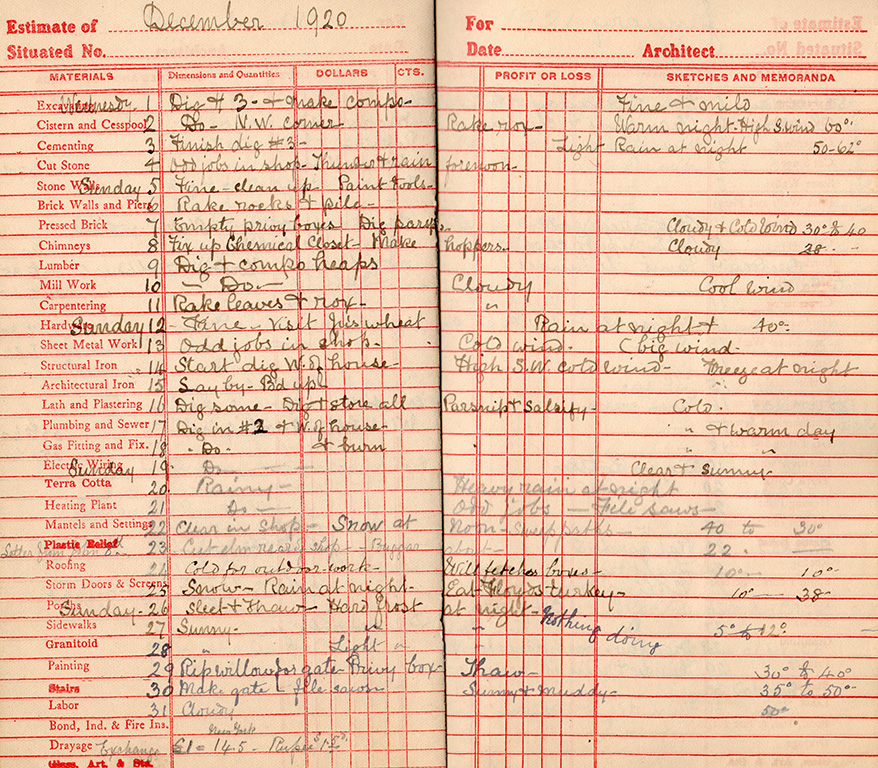 Estimate of December 1920 For
Situated No. Date Architect
MATERIALS Dimensions and Quantities DOLLARS CTS. PROFIT OR LOSS SKETCHES AND MEMORANDA
Wednesdy 1 Dig + 3 - + make compo- Fine + mild
Cistern and Cesspool 2 Do - N.W. corner Rake roy- Warm night. High S. wind 60°.
Cementing 3 Finish dig #3- Light Rain at night 50-62°
Cut Stone 4 Odd jobs in shop- Thunder + rain forenoon-
Stone Walls Sunday 5 Fine - clean up- Paint tools-
Brick Walls and Piers 6 Rake rocks + pile-
Pressed Brick 7 Empty privy boxes- Dig parsps. Cloudy + Cold Wind 30° to 40
Chimneys 8 Fix up Chemical Closet- Make hoppers- Cloudy 28 -
Lumber 9 Dig + compo heaps
Mill Work 10 - Do - Cloudy Cool wind
Carpentering 11 Rake leaves + roy- "
Sunday 12 - Fine - Visit Ju's wheat Rain at night + 40°-
Sheet Metal Work 13 Odd jobs in shop- Cold wind. (big wind-
Structural Iron 14 Start dig W. of house- High S.W. cold wind- Freeze at night
Architectural Iron 15 Lay by- Bd up-
Lath and Plastering 16 Dig some- Dig + store all Parsnip + Salsify- Cold.
Plumbing and Sewer 17 Dig in #2 + W. of house- " + warm day
Gas Fitting and Fix. 18 " Do- + burn " "
Electric Wiring Sunday 19 Do- Clear + Sunny-
Terra Cotta 20 Rainy- Heavy rain at night
Heating Plant 21 Do- Odd jobs - File saws-
Mantels and Settings 22 Clear in shop- Snow at Noon- Sweep paths- 40 to 30°
Plastic Relief 23 Cut elm rear of shop- 22.
Roofing 24 Cold for outdoor work- Will fetches boxes- 10°- 10°-
Storm Doors & Screens 25 Snow- Rain at night- Eat Floyds turkey- 10°- 38-
Sunday- 26 Sleet + Thaw- Hard frost at night-
Sidewalks 27 Sunny- " " Nothing doing 5° to 12°
Granitoid 28 " Light " "
Painting 29 Rip willow for gate- Privy box- Thaw- 30° to 40°
Stairs 30 Make gate - file saws- Sunny + Muddy- 35° to 50°-
Labor 31 Cloudy 50°
Bond, Ind. & Fire Ins. New York
Drayage Exchange £1 = 14.5 - Rupee
Glass, Art. & Sta.